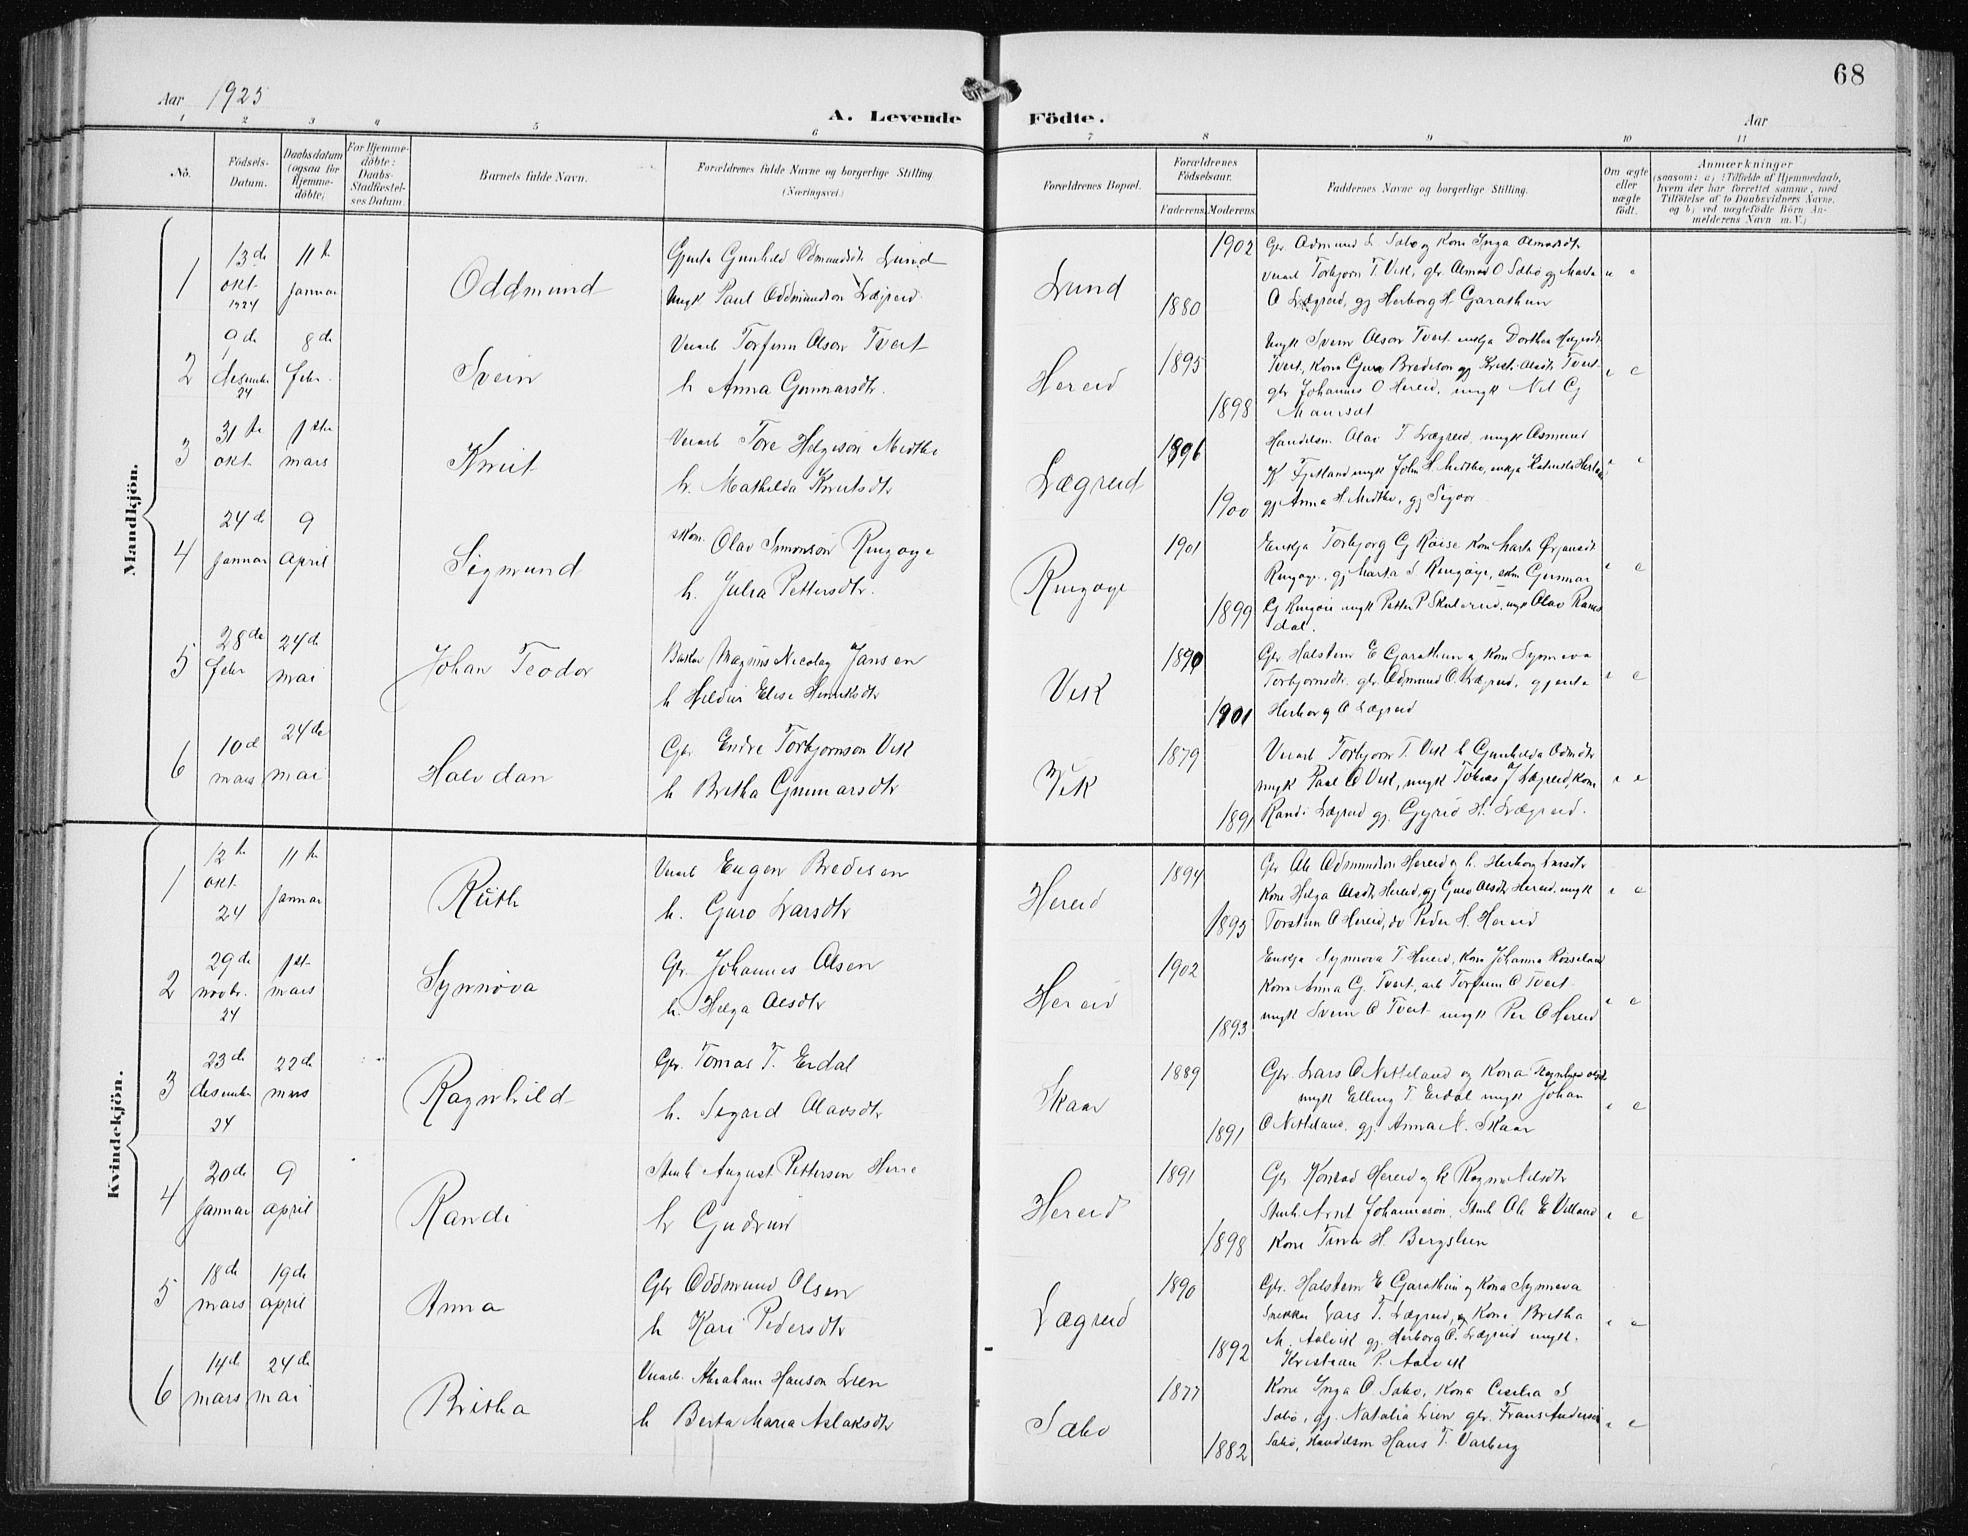 68
Aar 1925
A. Levende Födte.
Aar
1 2 3 4 5 6 7 8 9 10 11
Nô.
Födsels-
Datum.
Daabsdatum
(ogsaa for
Hjemme-
döbte)
For Hjemme-
döbte:
Daabs-
Stadfestel-
ses Datum.
Barnets fulde Navn.
Forældrenes fulde Navne og borgerlige Stilling
(Næringsvei.)
Forældrenes Bopæl.
Forældrenes
Födselsaar.
Faderens. Moderens.
Faddernes Navne og borgerlige Stilling.
Om ægte
eller
uægte
födt.
Anmærkninger
(saasom: a) i Tilfælde af Hjemmedaab,
hvem der har forrettet samme, med
Tilföielse af to Daabsvidners Navne,
og b) ved uægtefödte Börn An-
melderens Navn m. V.)
Mandkjön.
1
13de
okt.
1924
11te
januar
Oddmund
Gjenta Gunhild Odmundsdtr Lund
ungk Paul Oddmundson Lægreid
Lund
1902
1880
Gbr. Odmund L. Sæbø og Kone Inga Olmodsdtr
Verarb Torbjørn T. Vik, gbr. Olmod O Sæbø gj Marta
O Lægreid, gj Herborg H. Garathun
2
9de
desember
24
8de
febr.
Svein
Verarb Torfinn Olson Tveit
h Anna Gunnarsdtr.
Hereid
1895
1898
ungk Svein Olson Tveit enkja Dorthea
Tveit, Kona Guro Bredeson gj Olsdtr Tveit
gbr Johannes O Hereid, ungk Nil G
Maursæt
3
31te
okt.
1ste
mars
Knut
Verarb Tore Helgeson Midtbø
h. Mathilda Knutsdtr
Lægreid
1896
1900
Handelsm. Olav T Lægreid, ungk Osmund
K Fjetland ungk John H Midtbø, enkja
gj Anna H. Midtbø, gj Sigvor
4
24de
januar
9
april
Sigmund
skom. Olav Simonson Ringøye
h. Julia Pettersdtr.
Ringøye
1901
1899
Enkja Torbjørg G Røise Kone Marta Ørjansdt
Ringøye, gj Marta S. Ringøye, skm Gunnar
G Ringøie ungk Petter P Skulereid, ungk Olav Rams
dal.
5
28de
febr
24de
mai
Johan Teodor
Magnus Nicolay Jansen
h Hildur Elise Henriksdtr
Vik
1890
1901
Gbr. Halstein E Garathun og Kone Synneva
Torbjornsdtr. gbr. Odmund O. Lægreid, gjenta
Herborg O Lægreid
6
10de
mars
24de
mai
Halvdan
Gbr. Endre Torbjornson Vik
h Britha Gunnarsdtr
Vik
1879
1891
Verarb Torbjorn T. Vik h Gunhilda Odmdtr
ungk Paul O Vik, ungk Tobias J Lægreid, kone
Randi Lægreid gj. Gyrid H. Lægreid.
Kvindekjön.
1
12te
okt.
24
11te
januar
Ruth
Verarb Eugen Bredesen
h. Guro Larsdtr
Hereid
1894
1893
Gbr Ole Odmundson Hereid og h. Herborg Larsdtr
Kone Helga Olsdtr Hereid, gj Guro Olsdtr Hereid, ungk
Torstein O Hereid, do Peder H. Hereid
2
29de
novbr.
24
1ste
mars
Synnøva
Gbr. Johannes Olsen
h. Helga Olsdtr
Hereid
1902
1893
Enkja Synnova T Hereid, Kone Johanna Rosseland
Kona Anna G. Tveit, arb Torfinn O Tveit
ungk Svein O Tveit ungk Per O Hereid
3
23de
desember
24
22de
mars
Ragnhild
Gbr. Tomas T. Erdal
h. Sigrid Olavsdtr
Skaar
1889
1891
Gbr. Lars O Netteland og Kona Ragnhild
ungk Elling T. Erdal ungk Johan
O Netteland, gj. Anna N. Skaar
4
20de
januar
9
april
Randi
Stenh August Pettersen Herre
h Gudrun
Hereid
1891
1898
Gbr. Konrad Hereid og h Ragna Nilsdtr
Stenh. Arnt Johannesson, Stenh Ole E Villand
Kone Tina H. Bergslien
5
18de
mars
19de
april
Anna
Gbr Oddmund Olsen
h Kari Pedersdtr
Lægreid
1890
1892
Gbr. Halstein E Garathun og Kona Synneva
Snekker Lars T. Lægreid, og Kone Britha
M. Aalvik gj. Herborg O. Lægreid ungk.
Kristian P. Aalvik
6
14de
mars
24de
mai
Britha
Verarb. Abraham Hanson Lien
h Berta Maria Aslaksdtr
Sæbø
1877
1882
Kone Inga O. Sæbø, Kona Cecilia S
Sæbø, gj. Natalia Lien gbr. Frans Andersen
Sæbø, Handelsm Hans T. Varberg